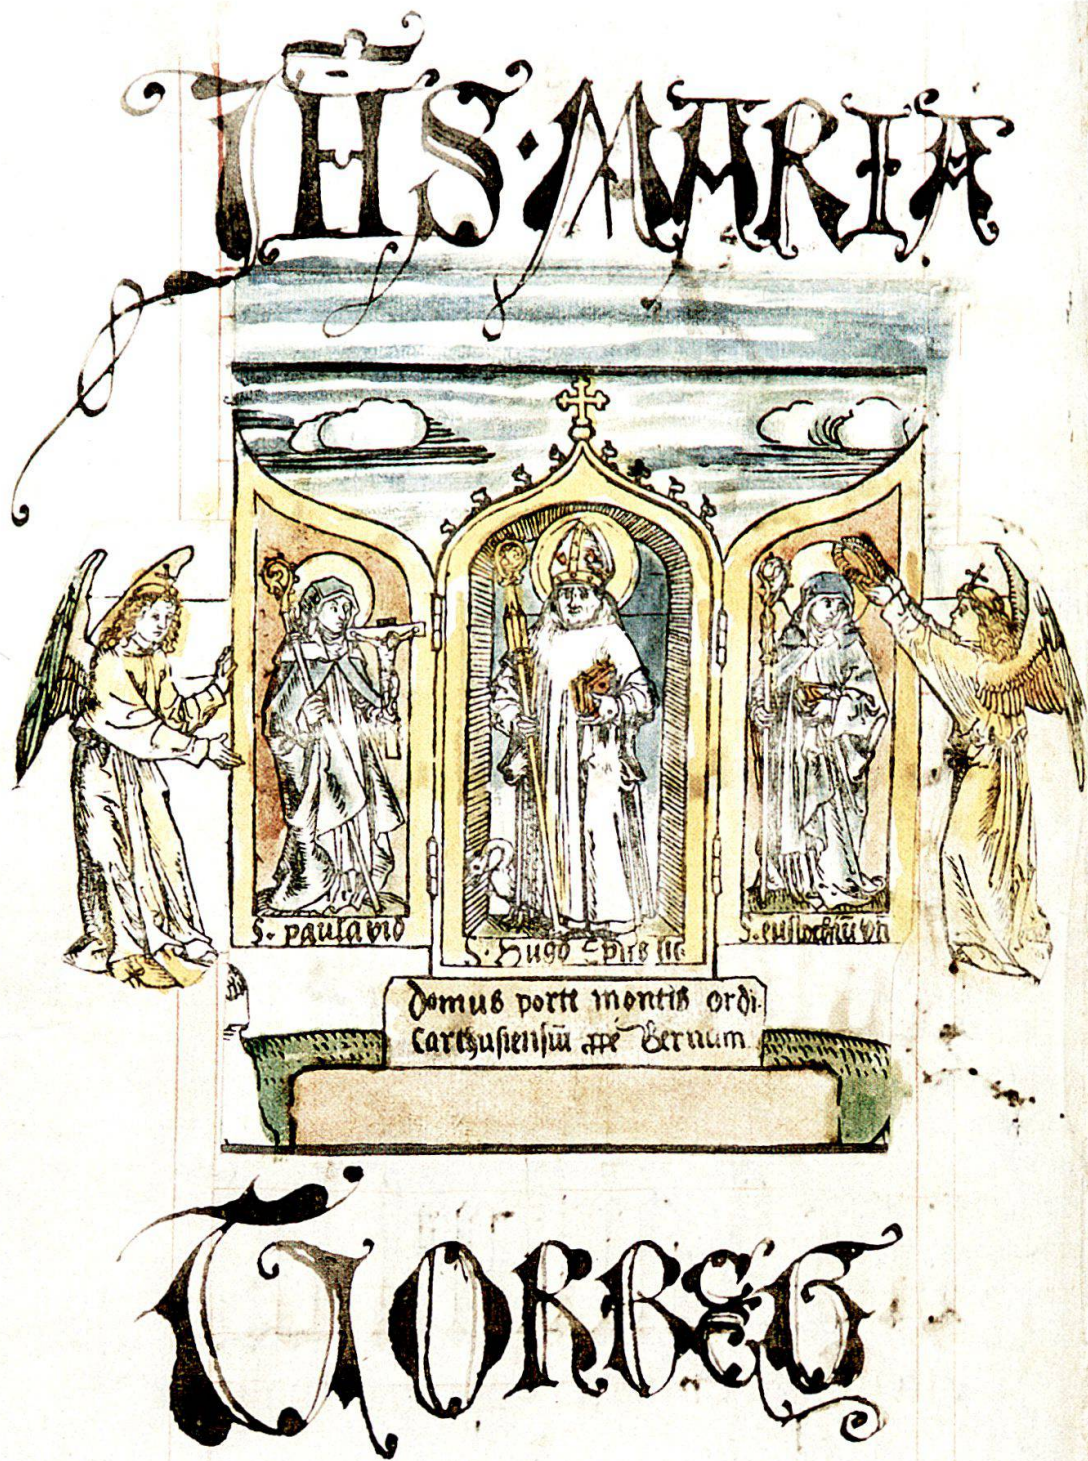 IHS · MARIA
S. paula vid
S. Hugo Epūs
S. eustochiū
domus porte montis ordi.
Carthusiensiū ꝓpe Bernum
TORBEG